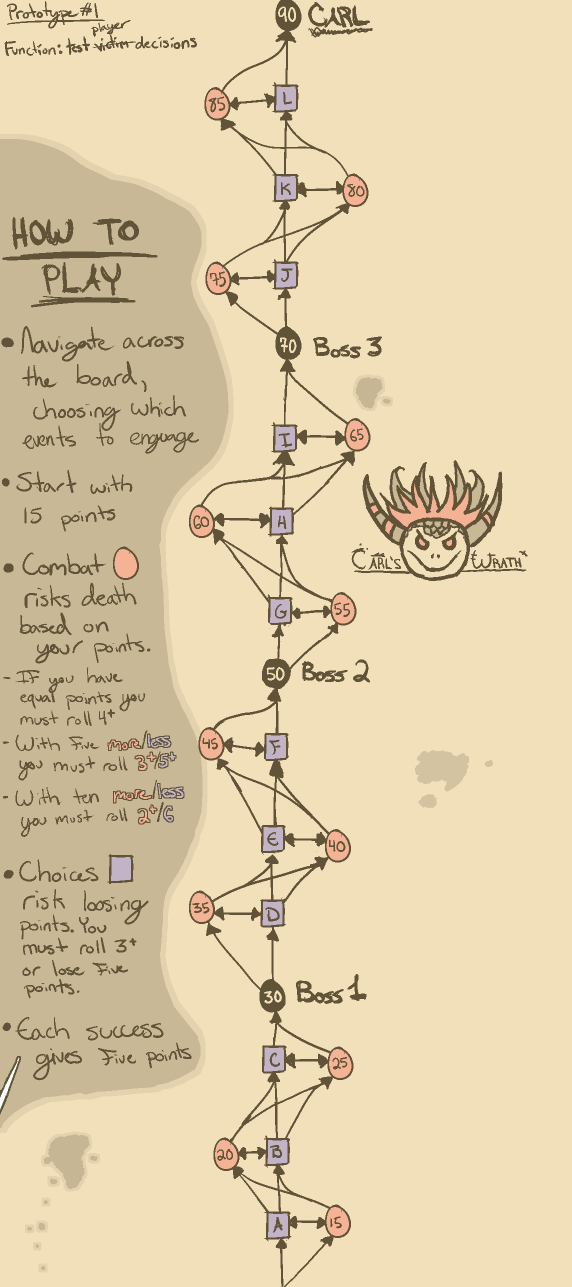 Prototype #1
player
Function: test victim decisions
HOW TO
PLAY
• Navigate across
the board,
choosing which
events to enguage
• Start with
15 points
• Combat
risks death
based on
your points.
- If you have
equal points you
must roll 4+
- With Five more/less
you must roll 3+/5+
- With ten more/less
you must roll 2+/6
• Choices
risk loosing
points. You
must roll 3+
or lose Five
points.
• Each success
gives Five points
90 CARL
85 L
K 80
75 J
70 Boss 3
I 65
60 H
G 55
50 Boss 2
45 F
E 40
35 D
30 Boss 1
C 25
20 B
A 15
CARL'S WRATH